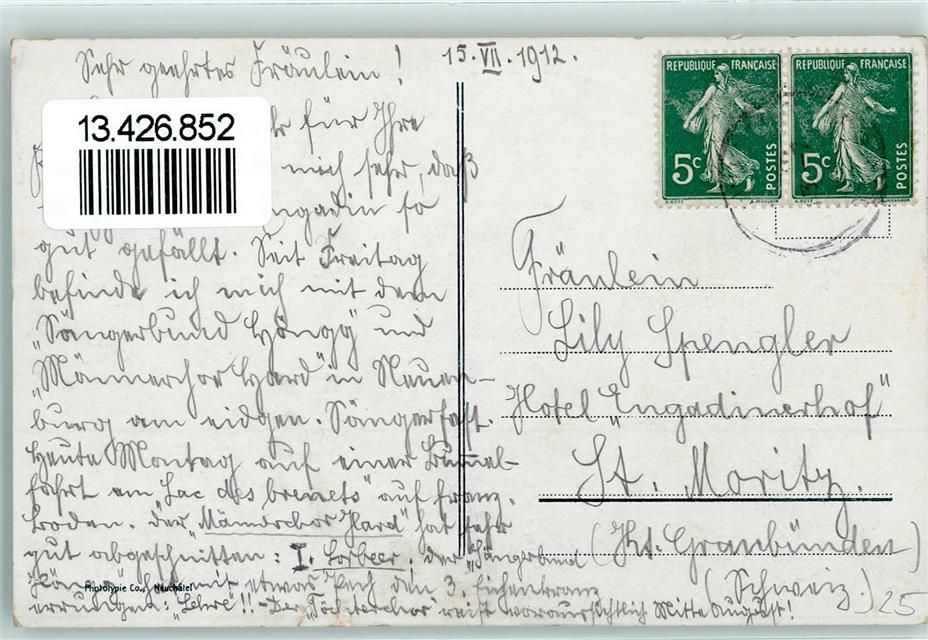 Sehr geehrtes Fräulein! 15.VII.1912.
für Ihre
mich sehr, daß
Engadin so
gut gefällt. Seit Freitag
befinde ich mich mit dem
„Sängerbund Höngg" und
„Männerchor Hard" in Neuen-
burg am eidgen. Sängerfest.
Heute Montag auf einer Bummel-
fahrt am „Lac des brenets" auf franz.
Boden. Der „Männerchor Hard" hat sehr
gut abgeschnitten: I. Lorbeer, der „Sängerbund
Höngg" mit etwas Pech den 3. Eichenkranz
errungen: „Lehre"!! - Der „Töchterchor" reist voraussichtlich Mitte August!
13.426.852
REPUBLIQUE FRANÇAISE
5c
POSTES
REPUBLIQUE FRANÇAISE
5c
POSTES
Fräulein
Lily Spengler
Hotel „Engadinerhof"
St. Moritz.
(Kt. Graubünden)
(Schweiz.)
25
Phototypie Co., Neuchâtel